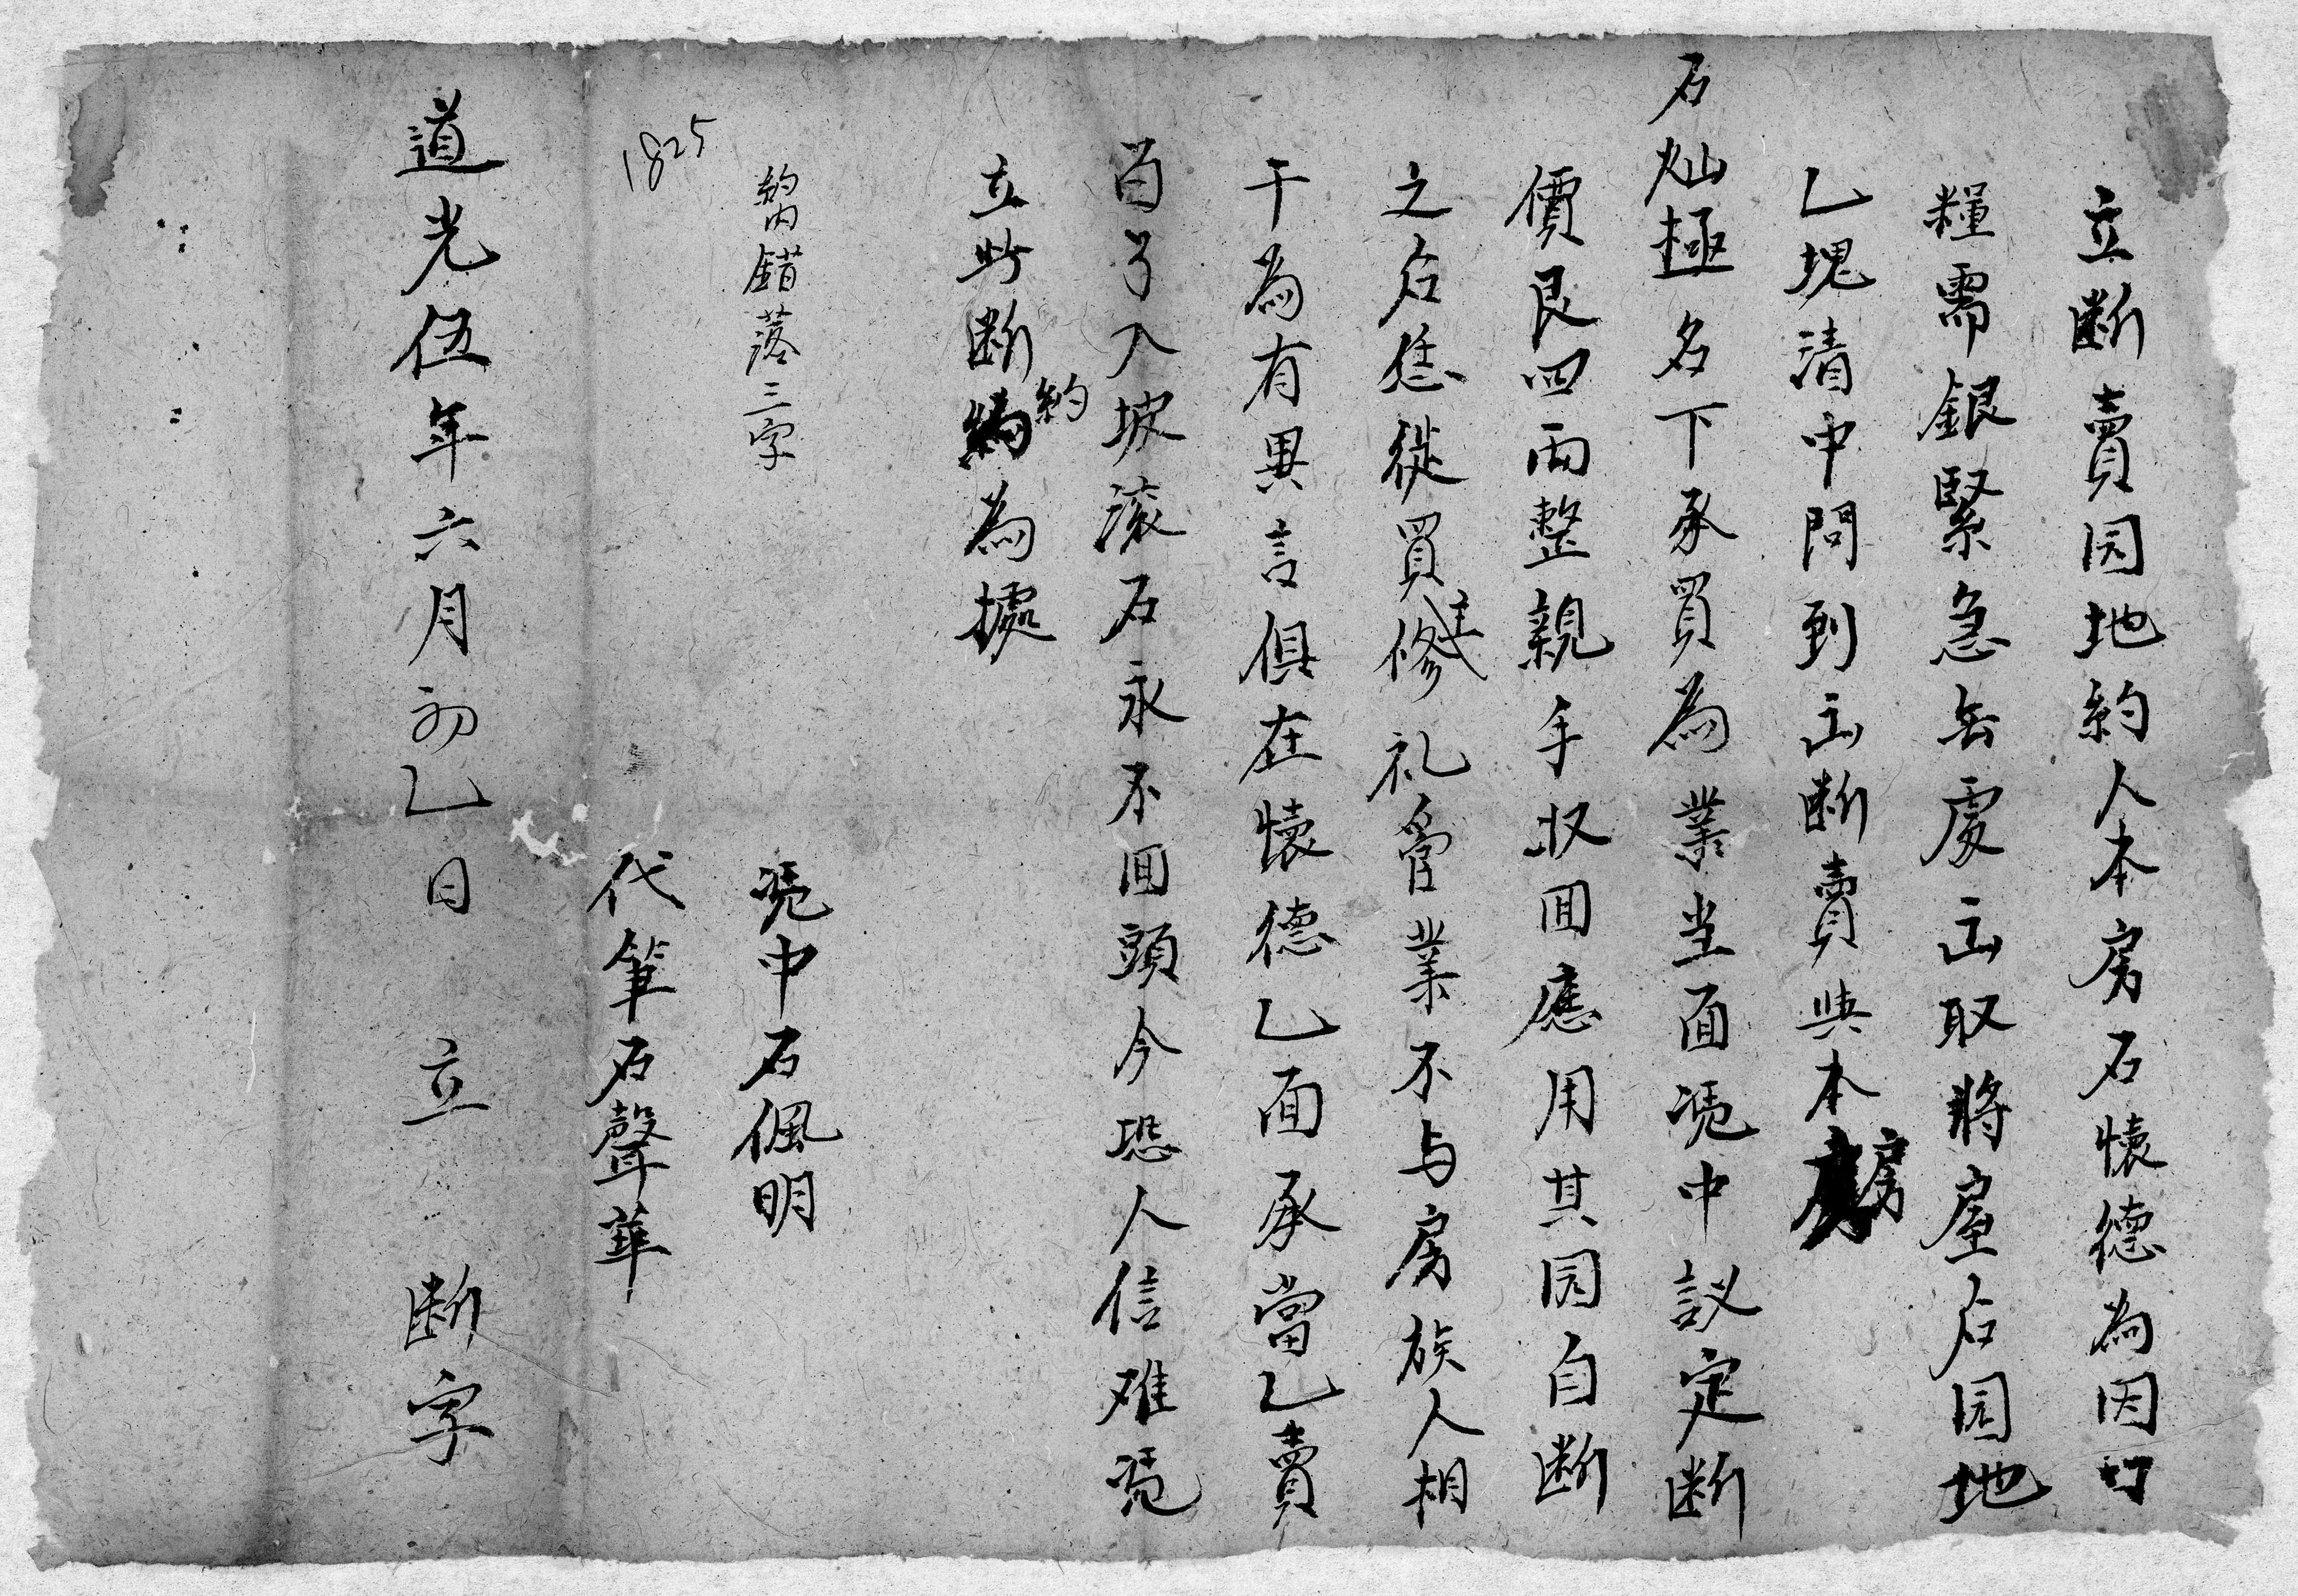 立断賣园地約人本房石懐德為因口
糧需銀緊急無處出取將屋后园地
乙塊清中問到出断賣與本房
石灿極名下承買為業当面凴中議定断
價艮四両整親手収囬應用其园自断
之后恁從買主修礼管業不与房族人相
干為有異言俱在懐德乙面承當乙賣
百了入坡滚石永不囬頭今恐人信难凴
立此断約為據
契内錯落三字
凴中石佩明
1825
代筆石聲華
道光伍年六月初乙日 立 断字